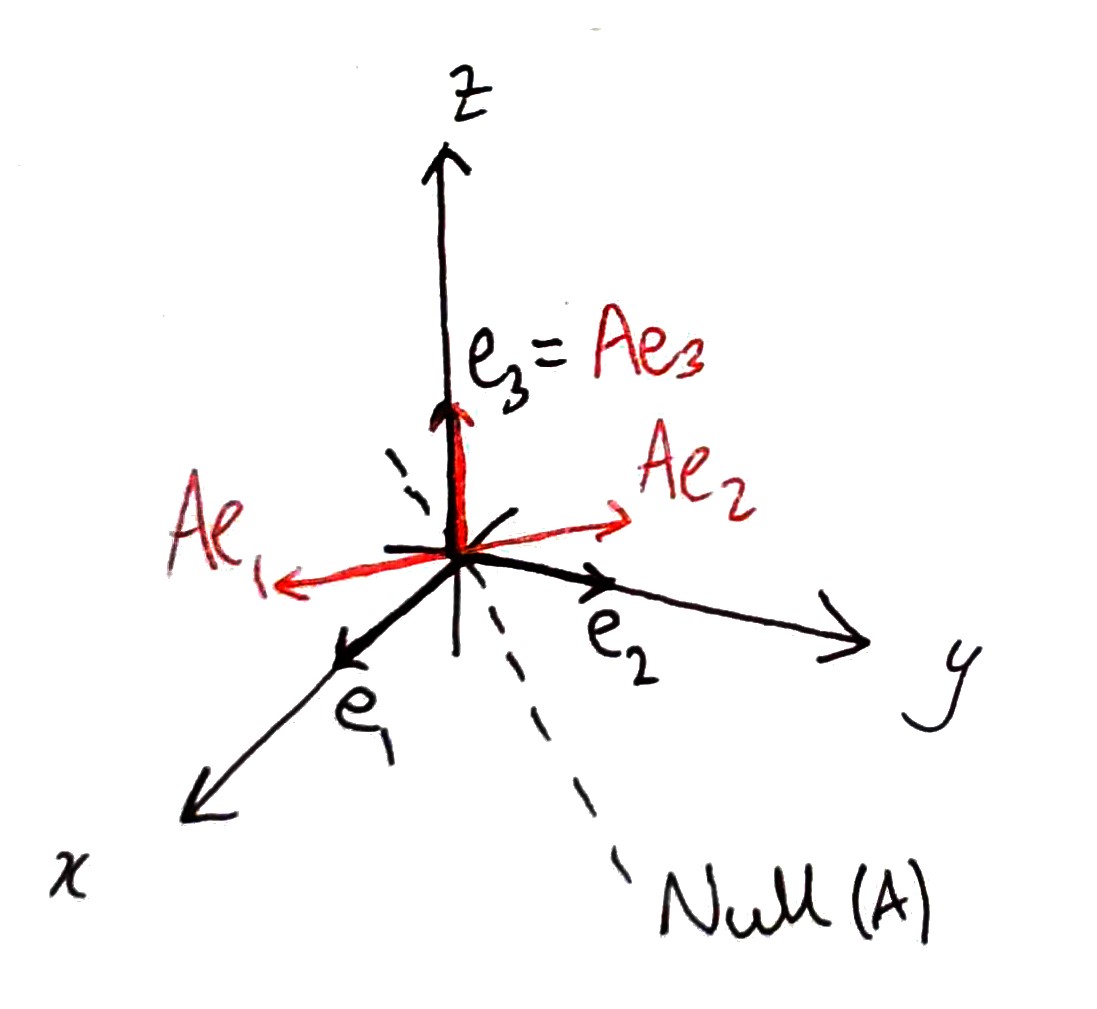 z
e₃ = Ae₃
Ae₂
Ae₁
e₂
e₁
y
x
Null (A)